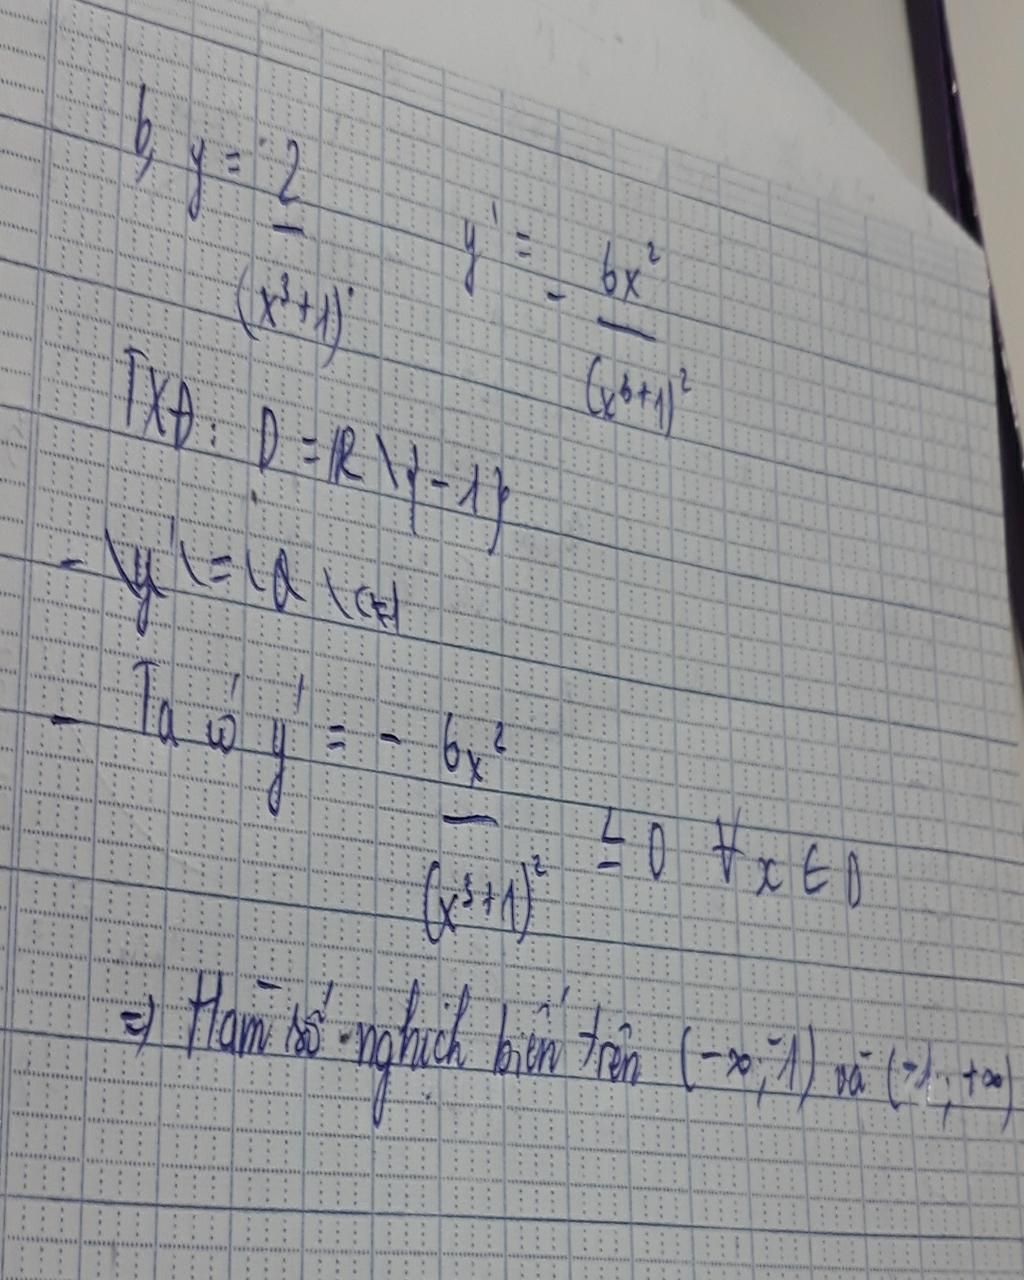 b, y = 2/(x³+1) y' = - 6x²/(x³+1)²
TXĐ: D = ℝ \ {-1}
- Ta có y' = - 6x²/(x³+1)² ≤ 0 ∀x ∈ D
=> Hàm số nghịch biến trên (-∞; -1) và (-1; +∞)